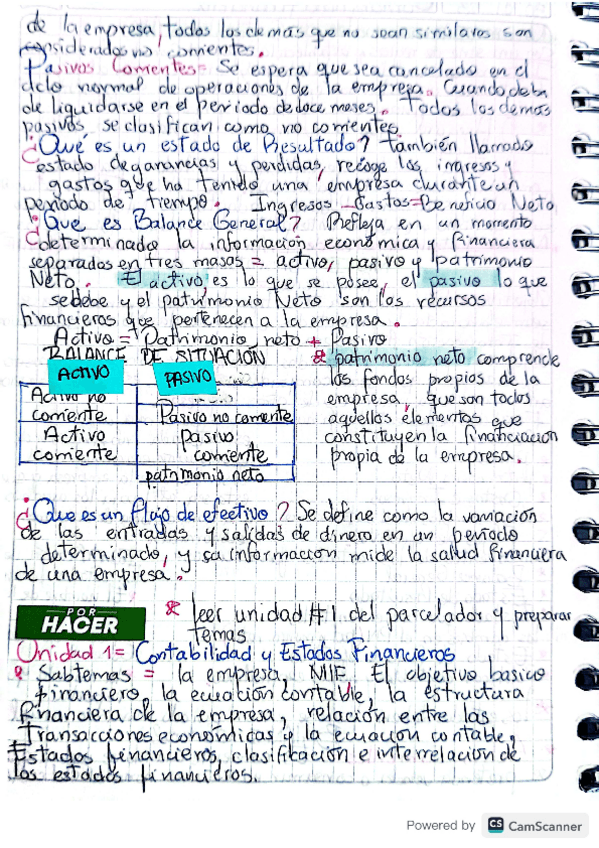 de la empresa, todos los demás que no sean similares son
considerados no corrientes.
Pasivos Corrientes= Se espera que sea cancelado en el
ciclo normal de operaciones de la empresa. Cuando deba
de liquidarse en el periodo de doce meses. Todos los demás
pasivos se clasifican como no corrientes.
¿Qué es un estado de Resultado? también llamado
estado de ganancias y perdidas, recoge los ingresos y
gastos que ha tenido una empresa durante un
periodo de tiempo. Ingresos - Gastos = Beneficio Neto
¿Qué es Balance General? Refleja en un momento
determinado la información económica y financiera
separados en tres masas = activo, pasivo y patrimonio
Neto. El activo es lo que se posee, el pasivo lo que
se debe y el patrimonio Neto son los recursos
financieros que pertenecen a la empresa.
Activo = Patrimonio neto + Pasivo
BALANCE DE SITUACIÓN
ACTIVO PASIVO
Activo no
corriente
Pasivo no corriente
Activo
corriente
Pasivo
corriente
patrimonio neto
patrimonio neto comprende
los fondos propios de la
empresa, que son todos
aquellos elementos que
constituyen la financiación
propia de la empresa.
¿Que es un flujo de efectivo? Se define como la variación
de las entradas y salidas de dinero en un periodo
determinado, y sa información mide la salud financiera
de una empresa.
POR
HACER
leer unidad #1 del parcelador y preparar
temas
Unidad 1= Contabilidad y Estados Financieros
Sabtemas = la empresa, MIF. El objetivo basico
financiero, la ecuación contable, la estructura
financiera de la empresa, relación entre las
Transacciones económicas y la ecuación contable,
Estados financieros, clasificación e interrelación de
los estados financieros.
Powered by CS CamScanner